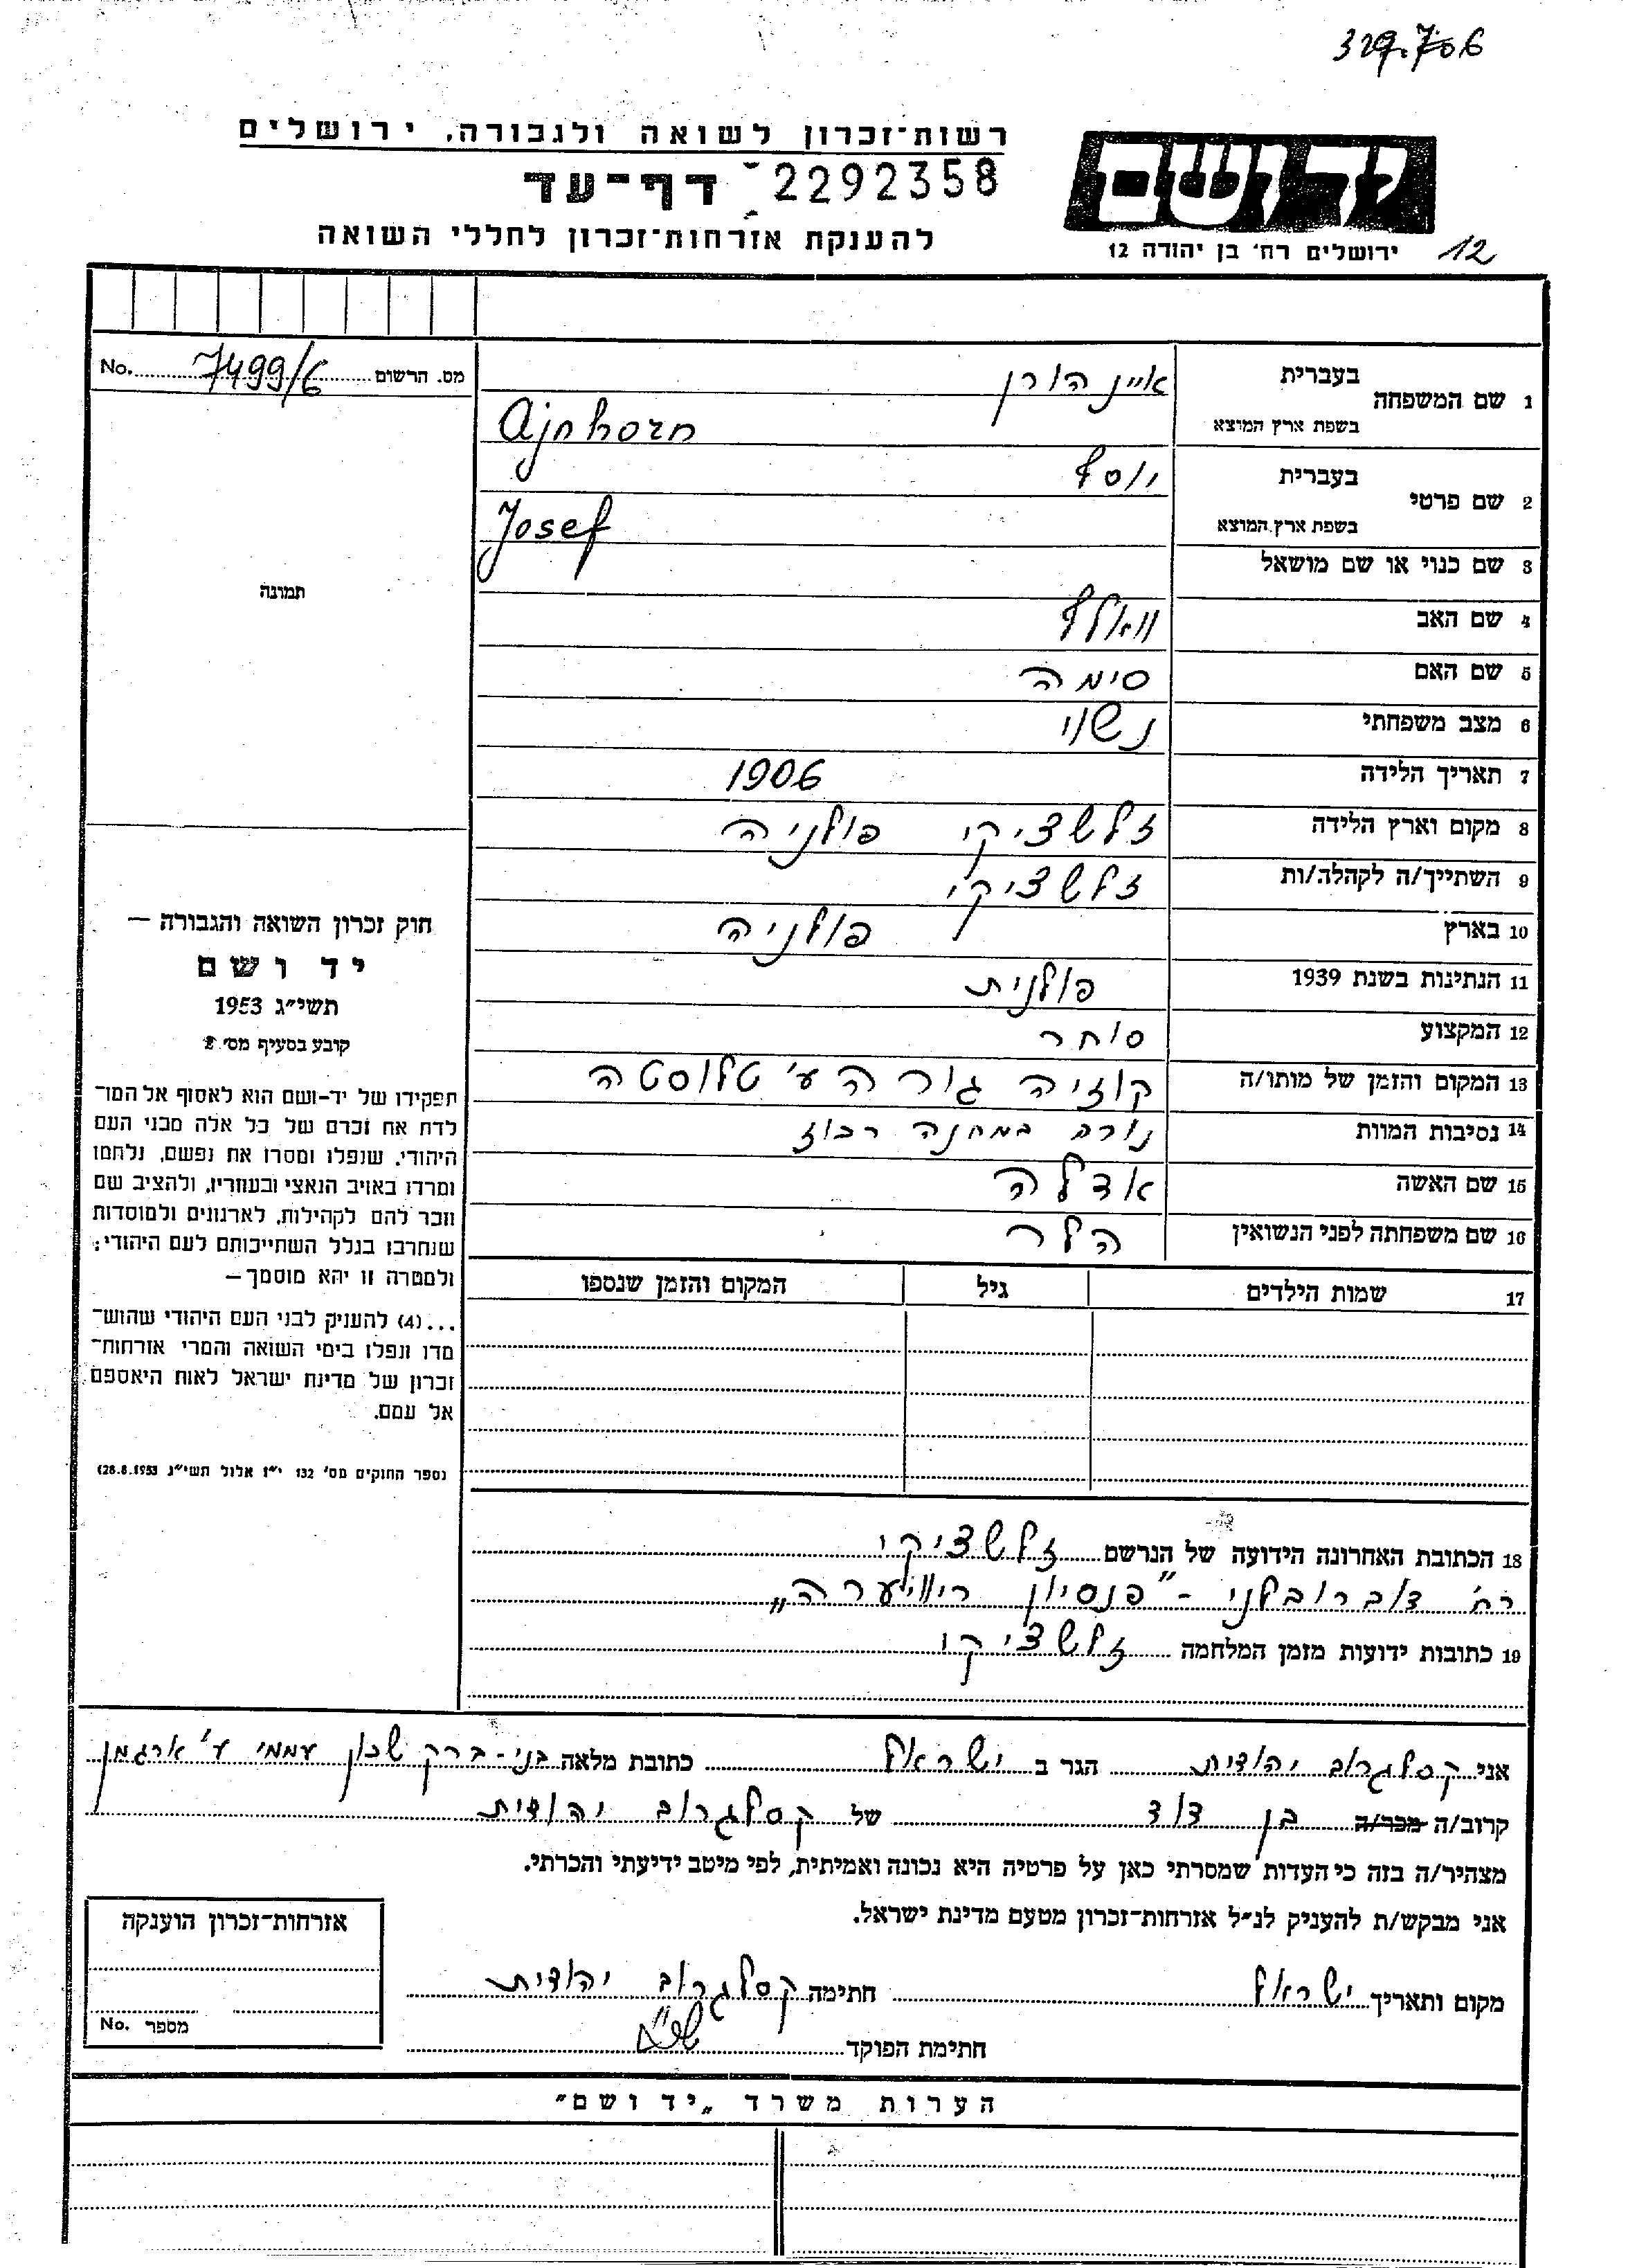 329.706
רשות־זכרון לשואה ולגבורה, ירושלים
דף־עד 2292358
יד ושם
להענקת אזרחות־זכרון לחללי השואה
ירושלים רח׳ בן יהודה 12
12
מס. הרשום 7499/6 No.
1 שם המשפחה
בעברית איינהורן
בשפת ארץ המוצא Ajnhorn
2 שם פרטי
בעברית יוסף
בשפת ארץ המוצא Josef
3 שם כנוי או שם מושאל
4 שם האב וואלף
5 שם האם סימה
6 מצב משפחתי נשוי
7 תאריך הלידה 1906
8 מקום וארץ הלידה זלשציקי פולניה
9 השתייך/ה לקהלה/ות זלשציקי
10 בארץ פולניה
11 הנתינות בשנת 1939 פולנית
12 המקצוע סוחר
13 המקום והזמן של מותו/ה קוזיה גורה ע׳ טלוסטה
14 נסיבות המוות נורה במחנה רכוז
15 שם האשה אדלה
16 שם משפחתה לפני הנשואין הלר
17 שמות הילדים גיל המקום והזמן שנספו
18 הכתובת האחרונה הידועה של הנרשם זלשציקי
רח׳ דוברובלני - "פנסיון ריוויערה"
19 כתובות ידועות מזמן המלחמה זלשציקי
תמונה
חוק זכרון השואה והגבורה —
יד ושם
תשי״ג 1953
קובע בסעיף מס׳ 2
תפקידו של יד־ושם הוא לאסוף אל המו־
לדת את זכרם של כל אלה מבני העם
היהודי, שנפלו ומסרו את נפשם, נלחמו
ומרדו באויב הנאצי ובעוזריו, ולהציב שם
וזכר להם לקהילות, לארגונים ולמוסדות
שנחרבו בגלל השתייכותם לעם היהודי;
ולמטרה זו יהא מוסמך—
...(4) להעניק לבני העם היהודי שהוש־
מדו ונפלו בימי השואה והמרי אזרחות־
זכרון של מדינת ישראל לאות היאספם
אל עמם.
(ספר החוקים מס׳ 132 י״ז אלול תשי״ג 28.8.1953)
אני קסלגרוב יהודית הגר ב ישראל כתובת מלאה בני-ברק שכון עממי ע׳ ארגמן
קרוב/ה מכר/ה בן דוד של קסלגרוב יהודית
מצהיר/ה בזה כי העדות שמסרתי כאן על פרטיה היא נכונה ואמיתית, לפי מיטב ידיעתי והכרתי.
אני מבקש/ת להעניק לנ״ל אזרחות־זכרון מטעם מדינת ישראל.
מקום ותאריך ישראל חתימה קסלגרוב יהודית
חתימת הפוקד
אזרחות־זכרון הוענקה
מספר No.
הערות משרד „יד ושם"